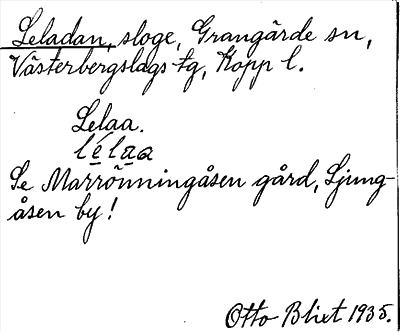 Leladan, sloge, Grangärde sn,
Västerbergslags tg, Kopp l.
Lelaa.
lélaa
Se Marrönningåsen gård, Ljung-
åsen by!
Otto Blixt 1935.